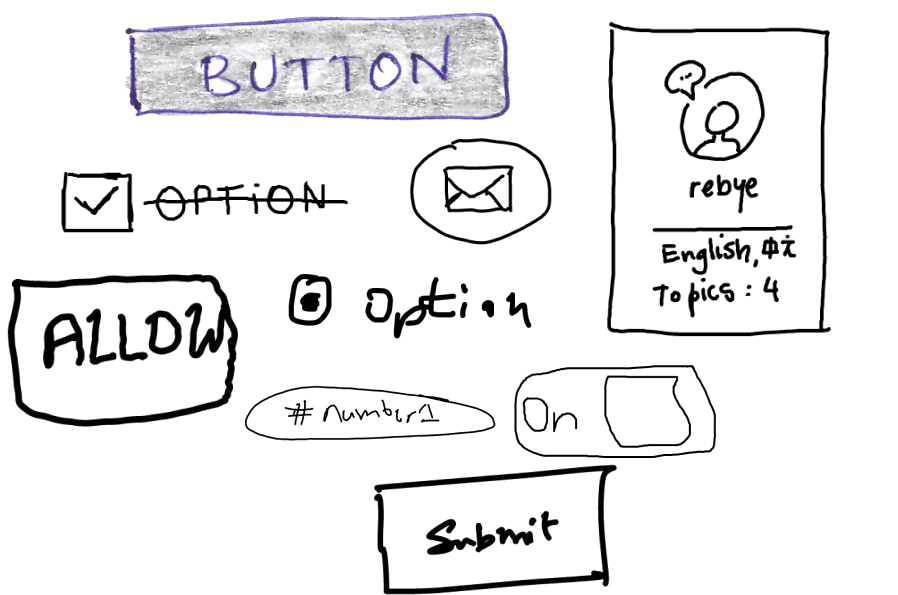 BUTTON
OPTION
rebye
English, 中文
Topics: 4
ALLOW
Option
#number1
On
Submit